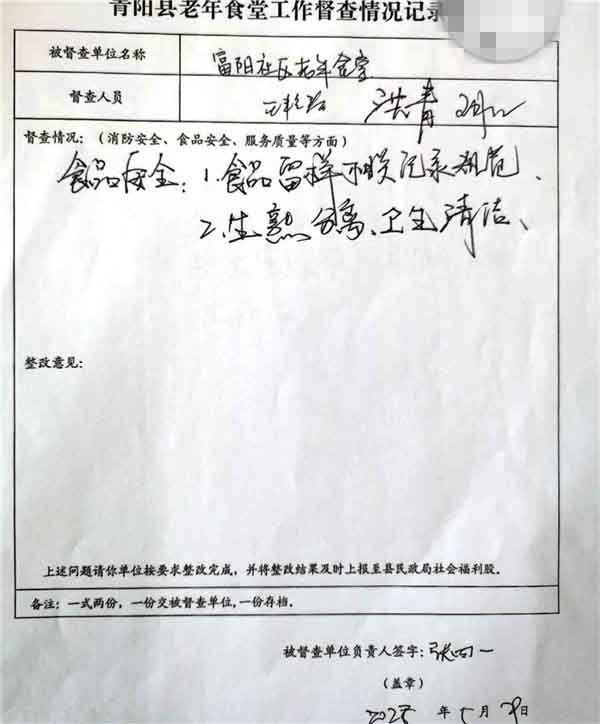 青阳县老年食堂工作督查情况记录
被督查单位名称 富阳社区老年食堂
督查人员 洪青
督查情况：（消防安全、食品安全、服务质量等方面）
食品安全：1.食品留样 记录规范、
2、生熟分离、卫生清洁、
整改意见：
上述问题请你单位按要求整改完成，并将整改结果及时上报至县民政局社会福利股。
备注：一式两份，一份交被督查单位，一份存档。
被督查单位负责人签字：
（盖章）
年 5月 日